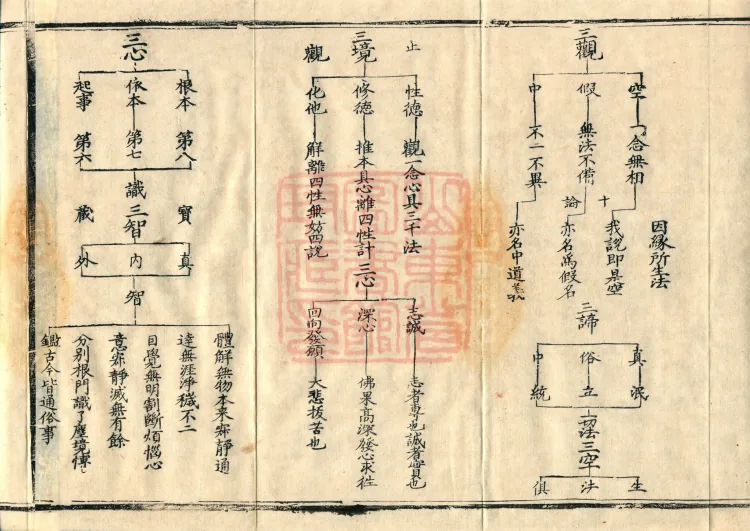 三觀
空 一念無相
假 無法不備
中 不一不異
因緣所生法
十 我說即是空
論 亦名爲假名
亦名中道義
三諦
真 泯
俗 立
中 統
一切法
三空
生
法
俱
止 三境 觀
性德 觀一念心具三千法
修德 推本具心離四性計
化他 解離四性無妨四說
三心
志誠 志者專也誠者實也
深心 佛果高深發心求徃
回向發願 大悲拔苦也
三心
根本 第八
依本 第七
起事 第六
識
三智
實 真
內
藏 外
智
體解無物本来寂靜通
達無涯淨穢不二
自覺無明割斷煩惱心
意寂靜滅無有餘
分別根門識了塵境
鑑古今皆通俗事